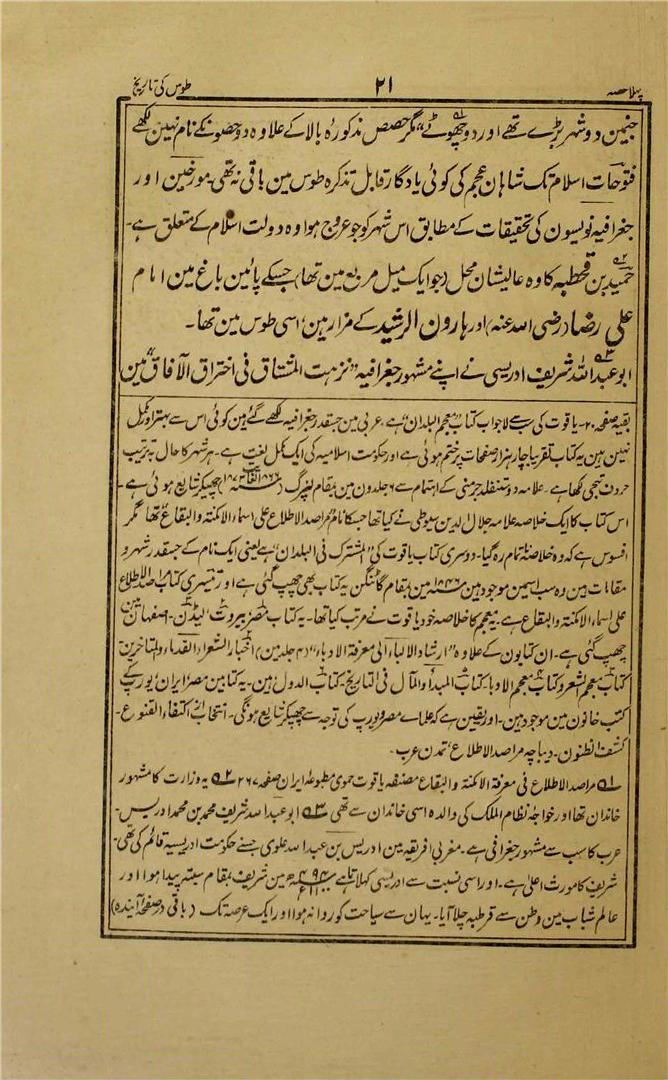 پہلا حصہ ۲۱ طوس کی تاریخ
جنمین دو شہر بڑے تھے اور دو چھوٹے" مگر حصص مذکورۂ بالا کے علاوہ دو حصونکے نام نہین لکھے
فتوحات اسلام تک شاہان عجم کی کوئی یادگار قابل تذکرہ طوس مین باقی نہ تھی۔ مورخین اور
جغرافیہ نویسون کی تحقیقات کے مطابق اس شہر کو جو عروج ہوا وہ دولت اسلام کے متعلق ہے۔
حمید بن قحطبہ کا وہ عالیشان محل (جو ایک میل مربع مین تھا) جسکے پائین باغ مین امام
علی رضا (رضی اللہ عنہ) اور ہارون الرشید کے مزار ہین، اسی طوس مین تھا۔
ابو عبد اللہ شریف ادریسی نے اپنے مشہور جغرافیہ "نزہت المشتاق فی اختراق الآفاق" مین
بقیہ صفحہ ۲۰۔ یاقوت کی سب سے لاجواب کتاب "معجم البلدان" ہے، عربی مین جسقدر جغرافیہ لکھے گئے ہین کوئی اس سے بہتر اور مکمل
نہین ہین یہ کتاب تقریباً چار ہزار صفحات پر ختم ہوئی ہے اور حکومت اسلامیہ کی ایک مکمل لغت ہے۔ ہر شہر کا حال بہ ترتیب
حروف تہجی لکھا ہے۔ علامہ دوستنفلد جرمنی کے اہتمام سے ۶ جلدون مین بمقام لیپزگ ( ) چھپکر شایع ہوئی ہے۔
اس کتاب کا ایک خلاصہ علامہ جلال الدین سیوطی نے کیا تھا جسکا نام "مراصد الاطلاع علی اسماء الامکنۃ والبقاع" تھا مگر
افسوس ہے کہ وہ خلاصہ ناتمام رہ گیا۔ دوسری کتاب یاقوت کی "المشترک فی البلدان" ہے یعنی ایک نام کے جسقدر شہر و
مقامات ہین وہ سب اسمین موجود ہین ۱۸۴۶ء مین بمقام گاٹنگن یہ کتاب بھی چھپ گئی ہے اور تیسری کتاب مراصد الاطلاع
علی اسماء الامکنۃ والبقاع ہے۔ یہ معجم کا خلاصہ خود یاقوت نے مرتب کیا تھا۔ یہ کتاب مصر، بیروت، لیڈن، اصفہان مین
چھپ گئی ہے۔ ان کتابون کے علاوہ "ارشاد الالباء الی معرفۃ الادباء" (۴ جلدین) اخبار الشعراء القدماء والمتاخرین
کتاب معجم الشعرو کتاب معجم الادبا۔ کتاب المبدأ والمآل فی التاریخ۔ کتاب الدول ہین۔ یہ کتابین مصر ایران، یورپ کے
کتب خانون مین موجود ہین۔ اور یقین ہے کہ علماے مصر و یورپ کی توجہ سے چھپکر شایع ہونگی۔ انتخاب از اکتفاء القنوع۔
کشف الظنون۔ دیباچہ مراصد الاطلاع، تمدن عرب۔
۵۱ مراصد الاطلاع فی معرفۃ الامکنۃ والبقاع مصنفہ یاقوت حموی مطبوعہ ایران صفحہ ۲۶۷ ۵۲ یہ وزارت کا مشہور
خاندان تھا اور خواجہ نظام الملک کی والدہ اسی خاندان سے تھی ۵۳ ابو عبد اللہ شریف محمد بن محمد ادریس۔
عرب کا سب سے مشہور جغرافی ہے۔ مغربی افریقہ مین ادریس بن عبد اللہ علوی جسنے حکومت ادریسیہ قائم کی تھی۔
شریف کا مورث اعلیٰ ہے۔ اور اسی نسبت سے ادریسی کہلاتا ہے ۴۹۳ھ مین شریف بمقام سبتہ پیدا ہوا اور
عالم شباب مین وطن سے قرطبہ چلا آیا۔ یہان سے سیاحت کو روانہ ہوا اور ایک عرصہ تک (باقی در صفحہ آیندہ)